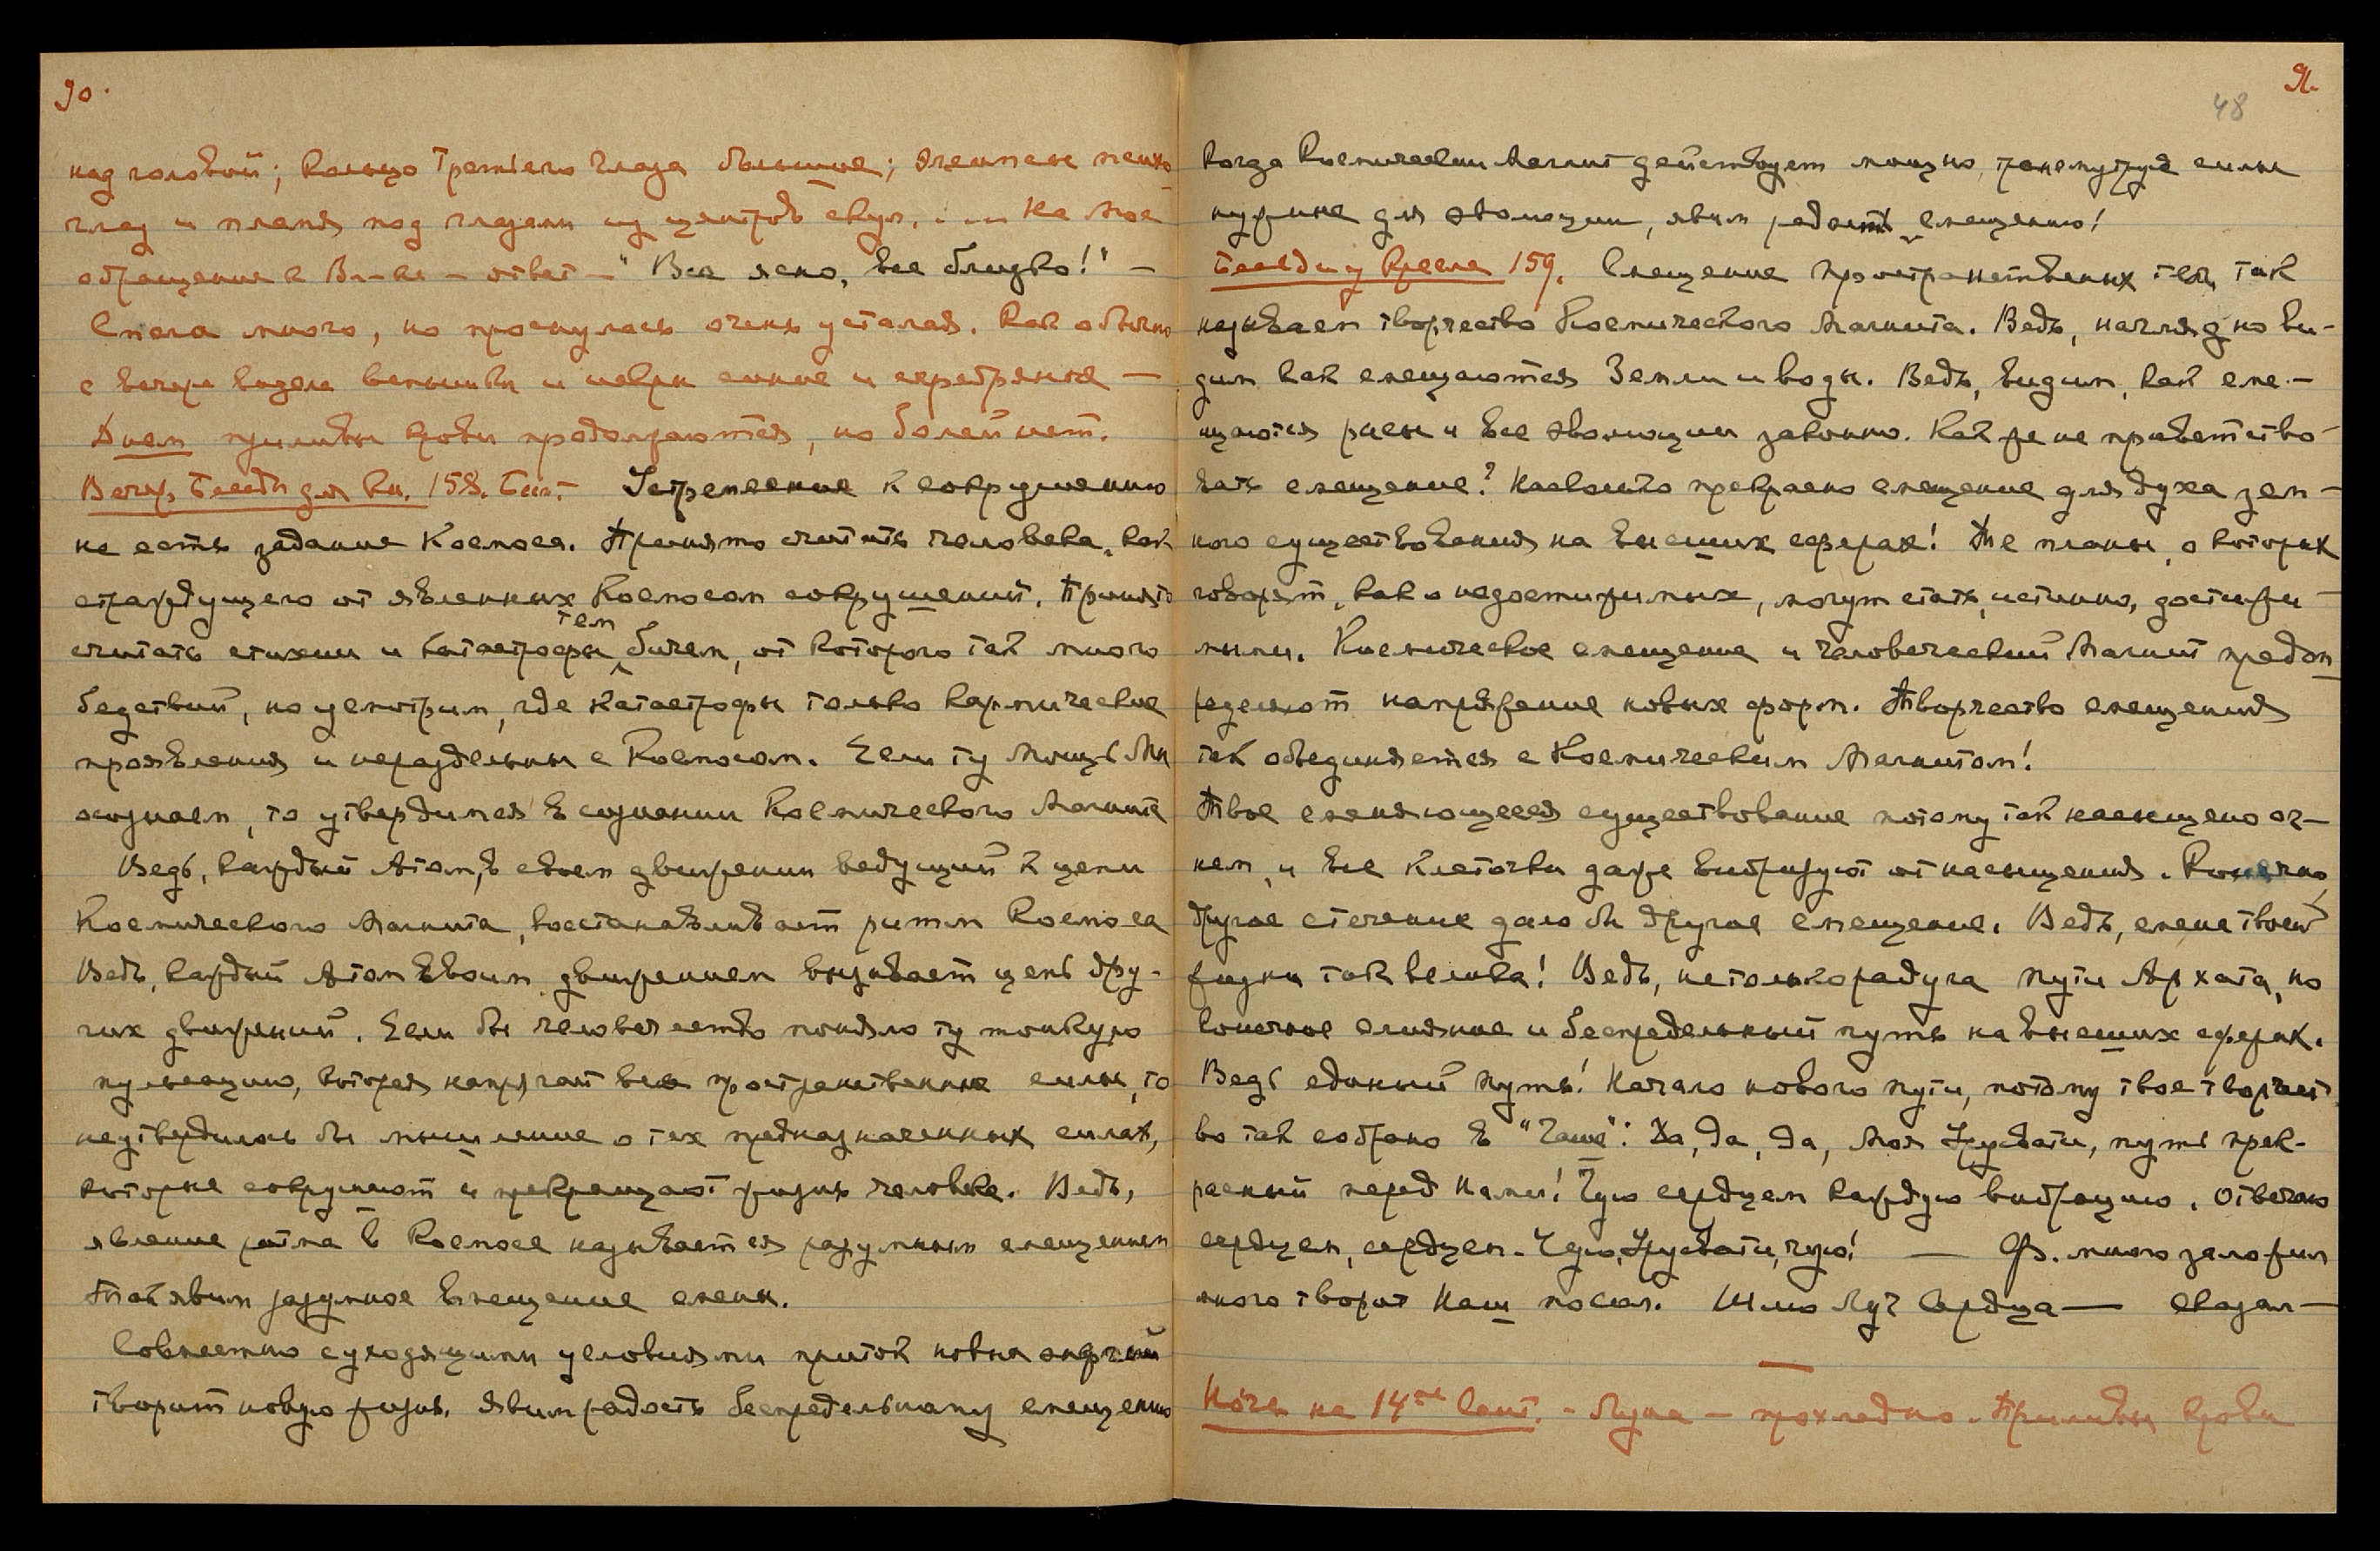 90.
над головой; Кольцо Третьего Глаза большое;
глаз и пламя под глазами из центров скул. . . . На мое
обращение к Вл-ке — ответ — "Все ясно, все близко!" —
Спала много, но проснулась очень усталая. Как обычно
с вечера видела вспышки и искры синие и серебряные —
Днем приливы крови продолжаются, но болей нет.
Вечер. Беседы для Кн. 158. Бесп. Устремление к сокрушению
не есть задание Космоса. Принято считать человека, как
страждущего от явленных Космосом сокрушений. Принято
считать стихии и катастрофы тем бичем, от которого так много
бедствий, но усмотрим, где катастрофы только кармические
проявления и нераздельны с Космосом. Если ту мощь Мы
осознаем, то утвердимся в сознании Космического Магнита
Ведь, каждый Атом, в своем движении ведущий к цепи
Космического Магнита, восстанавливает ритм Космоса
Ведь, каждый Атом своим движением вызывает цепь дру-
гих движений. Если бы человечество поняло ту тонкую
пульсацию, которая напрягает все пространственные силы, то
неутвердилось бы мышление о тех предназначенных силах,
которые сокрушают и прекращают жизнь человека. Ведь,
явление ритма в Космосе называется разумным смещением
Так явим разумное вмещение смены.
Совместно с уходящими условиями приток новых энергий
творит новую жизнь. Явим радость беспредельному смещению
91.
48
когда Космический Магнит действует мощно, силы
нужные для эволюции, явим радость смещению!
Беседы у Кресла 159. Смещение пространственных тел, так
называем творчество Космического Магнита. Ведь, наглядно ви-
дим как смещаются Земли и воды. Ведь, видим, как сме-
щаются расы и все эволюции законно. Как же не приветство-
вать смещение? Насколько прекрасно смещение для духа зем-
ного существования на высших сферах! Те планы, о которых
говорят, как о недостижимых, могут стать, истинно, достижи-
мыми. Космическое смещение и человеческий Магнит предоп-
ределяют напряжение новых форм. Творчество смещения
так объединяется с Космическим Магнитом!
Твое сменяющееся существование потому так насыщено ог-
нем, и все клеточки даже вибрируют от насыщения. Конечно,
другое стечение дало бы другое смещение. Ведь, смена твоей
жизни так велика! Ведь, не только радуга пути Архата, но
конечное слияние и беспредельный путь на высших сферах.
Ведь единый путь! Начало нового пути, потому твое творчест-
во так собрано в "Чаше". Да, да, да, Моя Урусвати, путь прек-
расный перед Нами! Чую сердцем каждую вибрацию. Отвечаю
сердцем, сердцем. Чую, Урусвати, чую! — Ф. много заложил
много творит Наш посол. Шлю Луч Сердца — сказал —
Ночь на 14ое Сент. — Луна — прохладно. Приливы крови